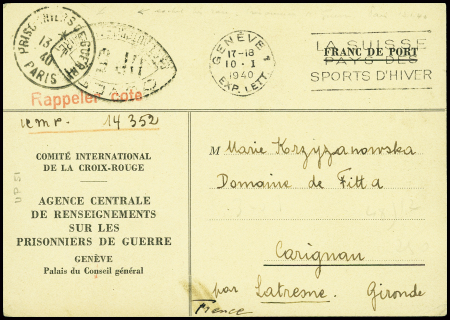 PRISONNIERS DE GUERRE
PARIS
GENÈVE 1
17-18
10-I
1940
EXP. LETT.
LA SUISSE
PAYS DES
SPORTS D'HIVER
FRANC DE PORT
Rappeler cote
14 352
COMITÉ INTERNATIONAL
DE LA CROIX-ROUGE
AGENCE CENTRALE
DE RENSEIGNEMENTS
SUR LES
PRISONNIERS DE GUERRE
GENÈVE
Palais du Conseil général
M Marie Korzyzanowska
Domaine de Fitta
Carignan
par Latresne, Gironde
France